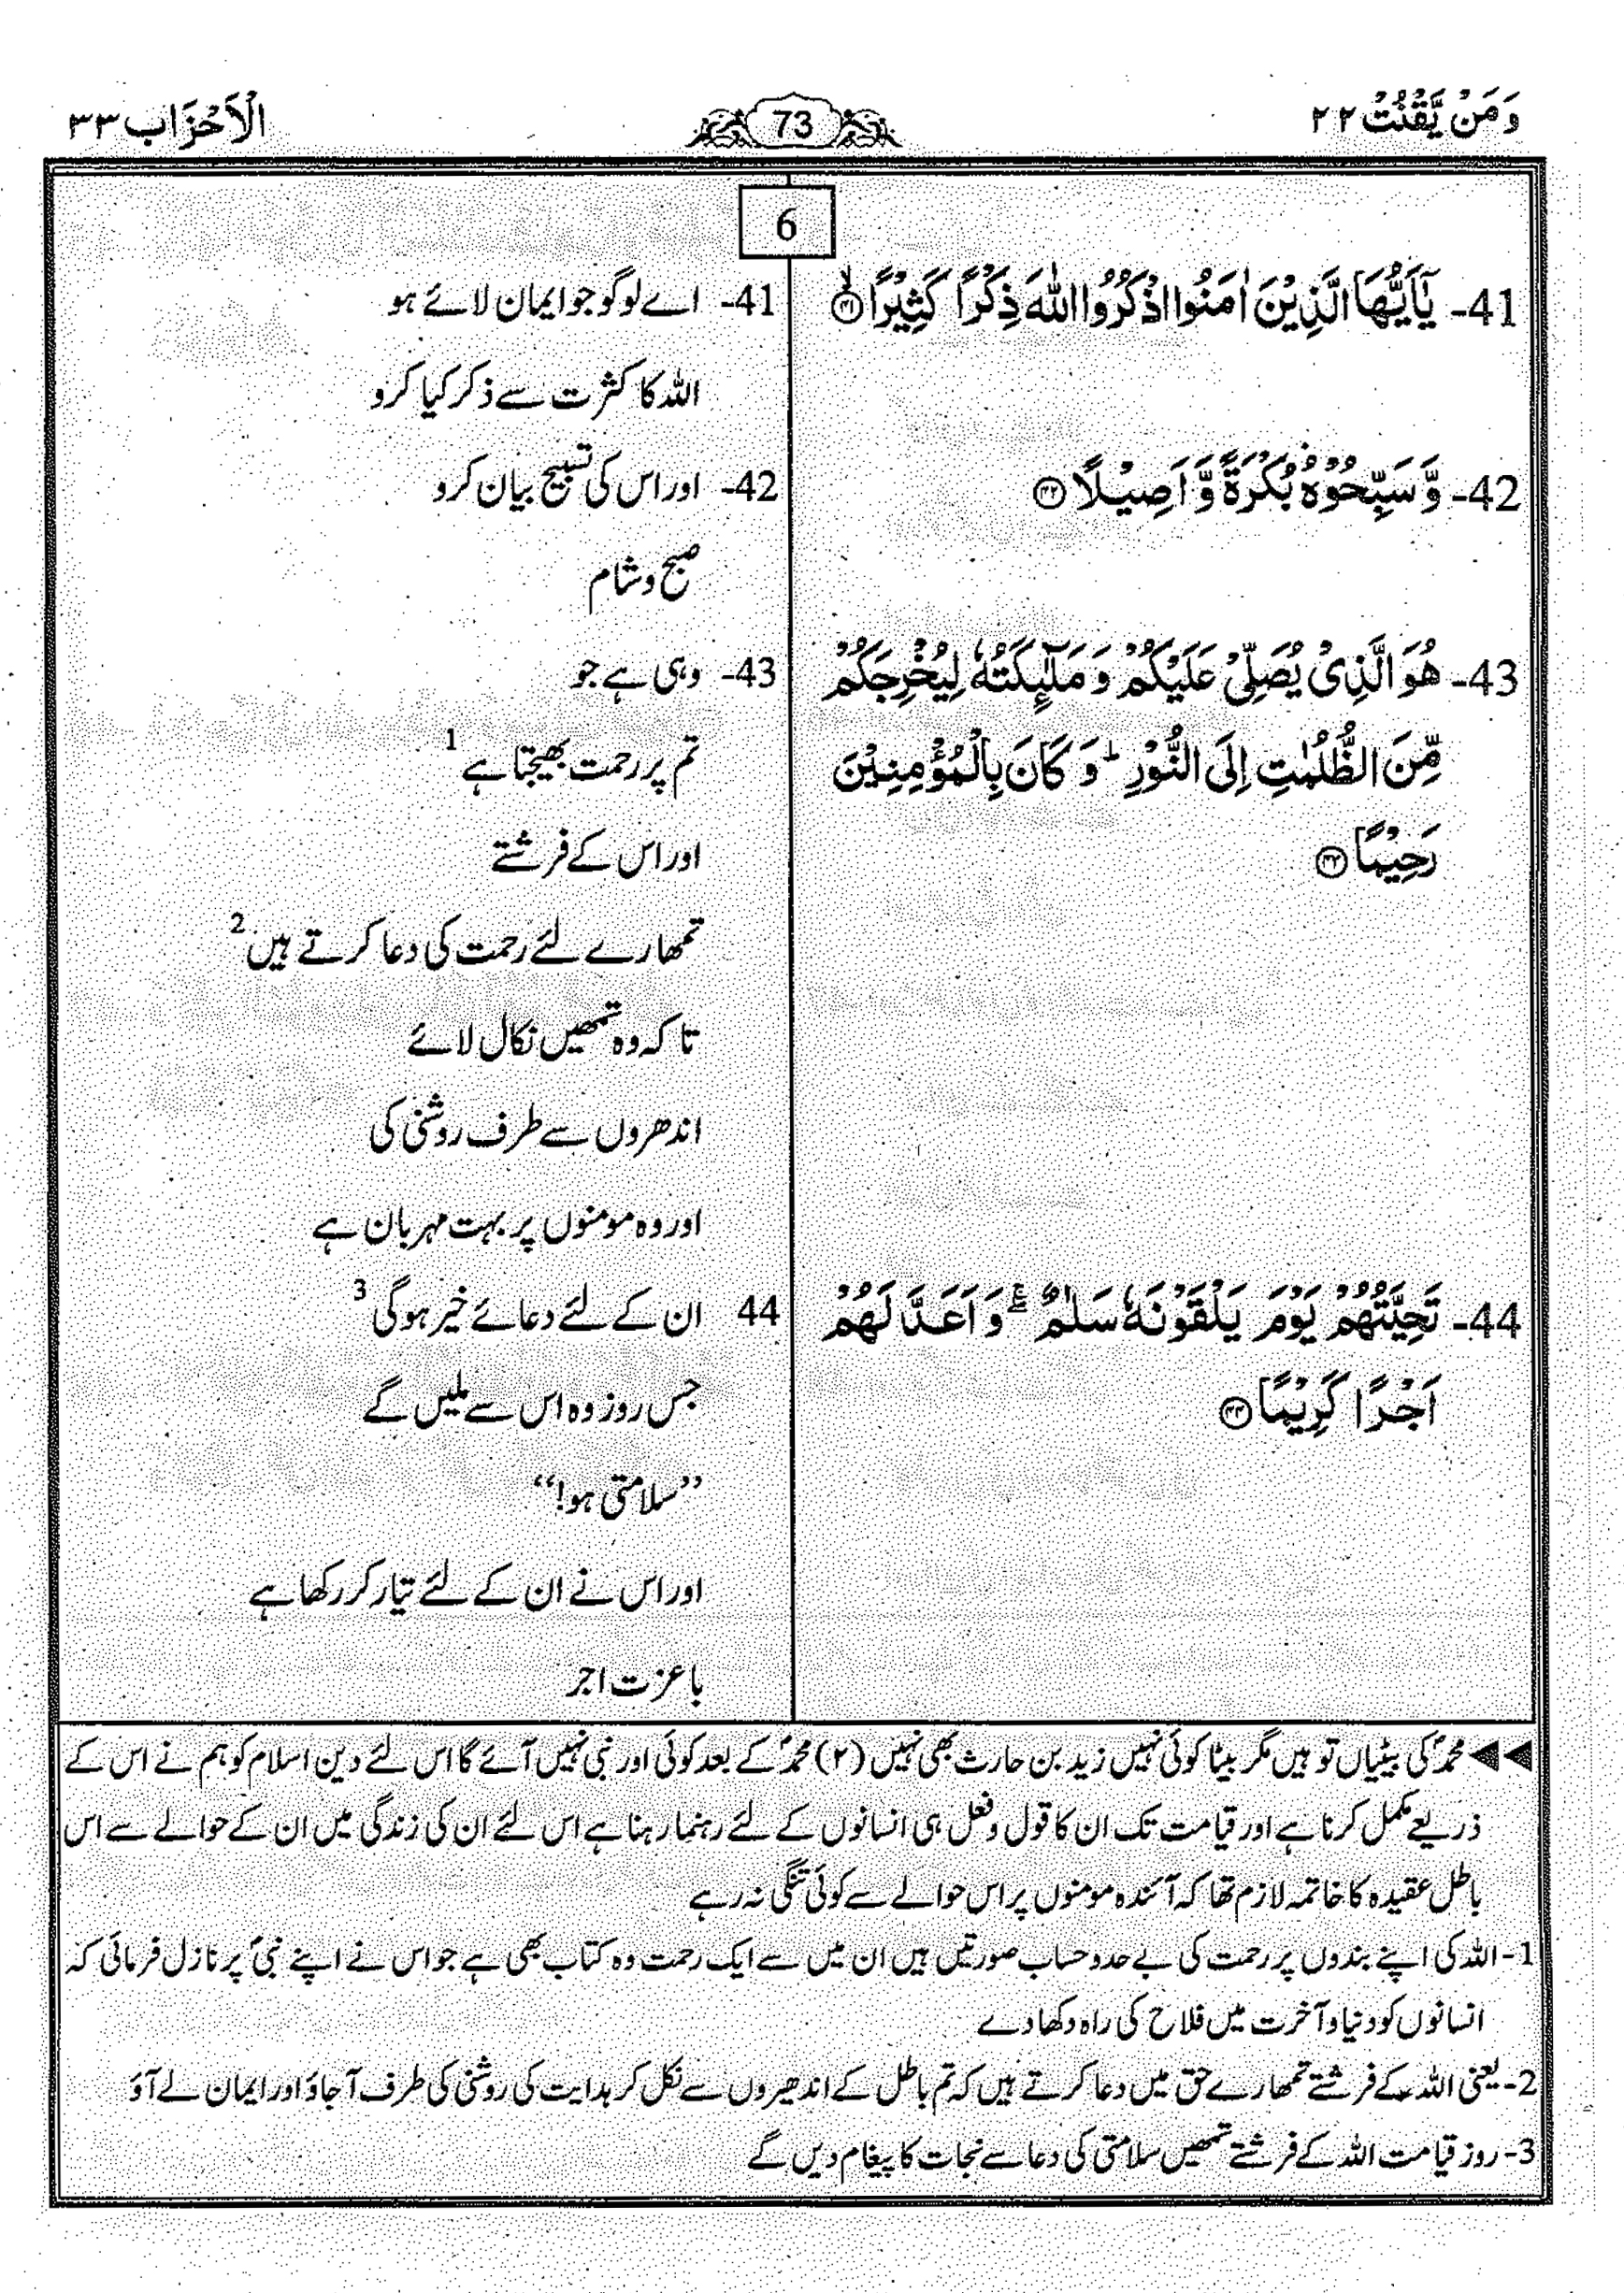 وَمَنْ يَّقْنُتْ ٢٢
73
الْاَحْزَاب ٣٣
6
41- يٰۤاَيُّهَا الَّذِيْنَ اٰمَنُوا اذْكُرُوا اللّٰهَ ذِكْرًا كَثِيْرًا ۙ﴿۴۱﴾
42- وَّ سَبِّحُوْهُ بُكْرَةً وَّ اَصِيْلًا ﴿۴۲﴾
43- هُوَ الَّذِيْ يُصَلِّيْ عَلَيْكُمْ وَ مَلٰٓئِكَتُهٗ لِيُخْرِجَكُمْ
مِّنَ الظُّلُمٰتِ اِلَى النُّوْرِ ؕ وَ كَانَ بِالْمُؤْمِنِيْنَ
رَحِيْمًا ﴿۴۳﴾
44- تَحِيَّتُهُمْ يَوْمَ يَلْقَوْنَهٗ سَلٰمٌ ۖۚ وَ اَعَدَّ لَهُمْ
اَجْرًا كَرِيْمًا ﴿۴۴﴾
41- اے لوگو جو ایمان لائے ہو
اللہ کا کثرت سے ذکر کیا کرو
42- اور اس کی تسبیح بیان کرو
صبح و شام
43- وہی ہے جو
تم پر رحمت بھیجتا ہے 1
اور اس کے فرشتے
تمھارے لئے رحمت کی دعا کرتے ہیں 2
تا کہ وہ تمھیں نکال لائے
اندھروں سے طرف روشنی کی
اور وہ مومنوں پر بہت مہربان ہے
44 ان کے لئے دعائے خیر ہوگی 3
جس روز وہ اس سے ملیں گے
”سلامتی ہو!“
اور اس نے ان کے لئے تیار کر رکھا ہے
با عزت اجر
◀◀ محمدؐ کی بیٹیاں تو ہیں مگر بیٹا کوئی نہیں زید بن حارث بھی نہیں (۲) محمدؐ کے بعد کوئی اور نبی نہیں آئے گا اس لئے دین اسلام کو ہم نے اس کے
ذریعے مکمل کرنا ہے اور قیامت تک ان کا قول و فعل ہی انسانوں کے لئے رہنما رہنا ہے اس لئے ان کی زندگی میں ان کے حوالے سے اس
باطل عقیدہ کا خاتمہ لازم تھا کہ آئندہ مومنوں پر اس حوالے سے کوئی تنگی نہ رہے
1- اللہ کی اپنے بندوں پر رحمت کی بے حد و حساب صورتیں ہیں ان میں سے ایک رحمت وہ کتاب بھی ہے جو اس نے اپنے نبیؐ پر نازل فرمائی کہ
انسانوں کو دنیا و آخرت میں فلاح کی راہ دکھا دے
2- یعنی اللہ کے فرشتے تمھارے حق میں دعا کرتے ہیں کہ تم باطل کے اندھیروں سے نکل کر ہدایت کی روشنی کی طرف آ جاؤ اور ایمان لے آؤ
3- روز قیامت اللہ کے فرشتے تمھیں سلامتی کی دعا سے نجات کا پیغام دیں گے